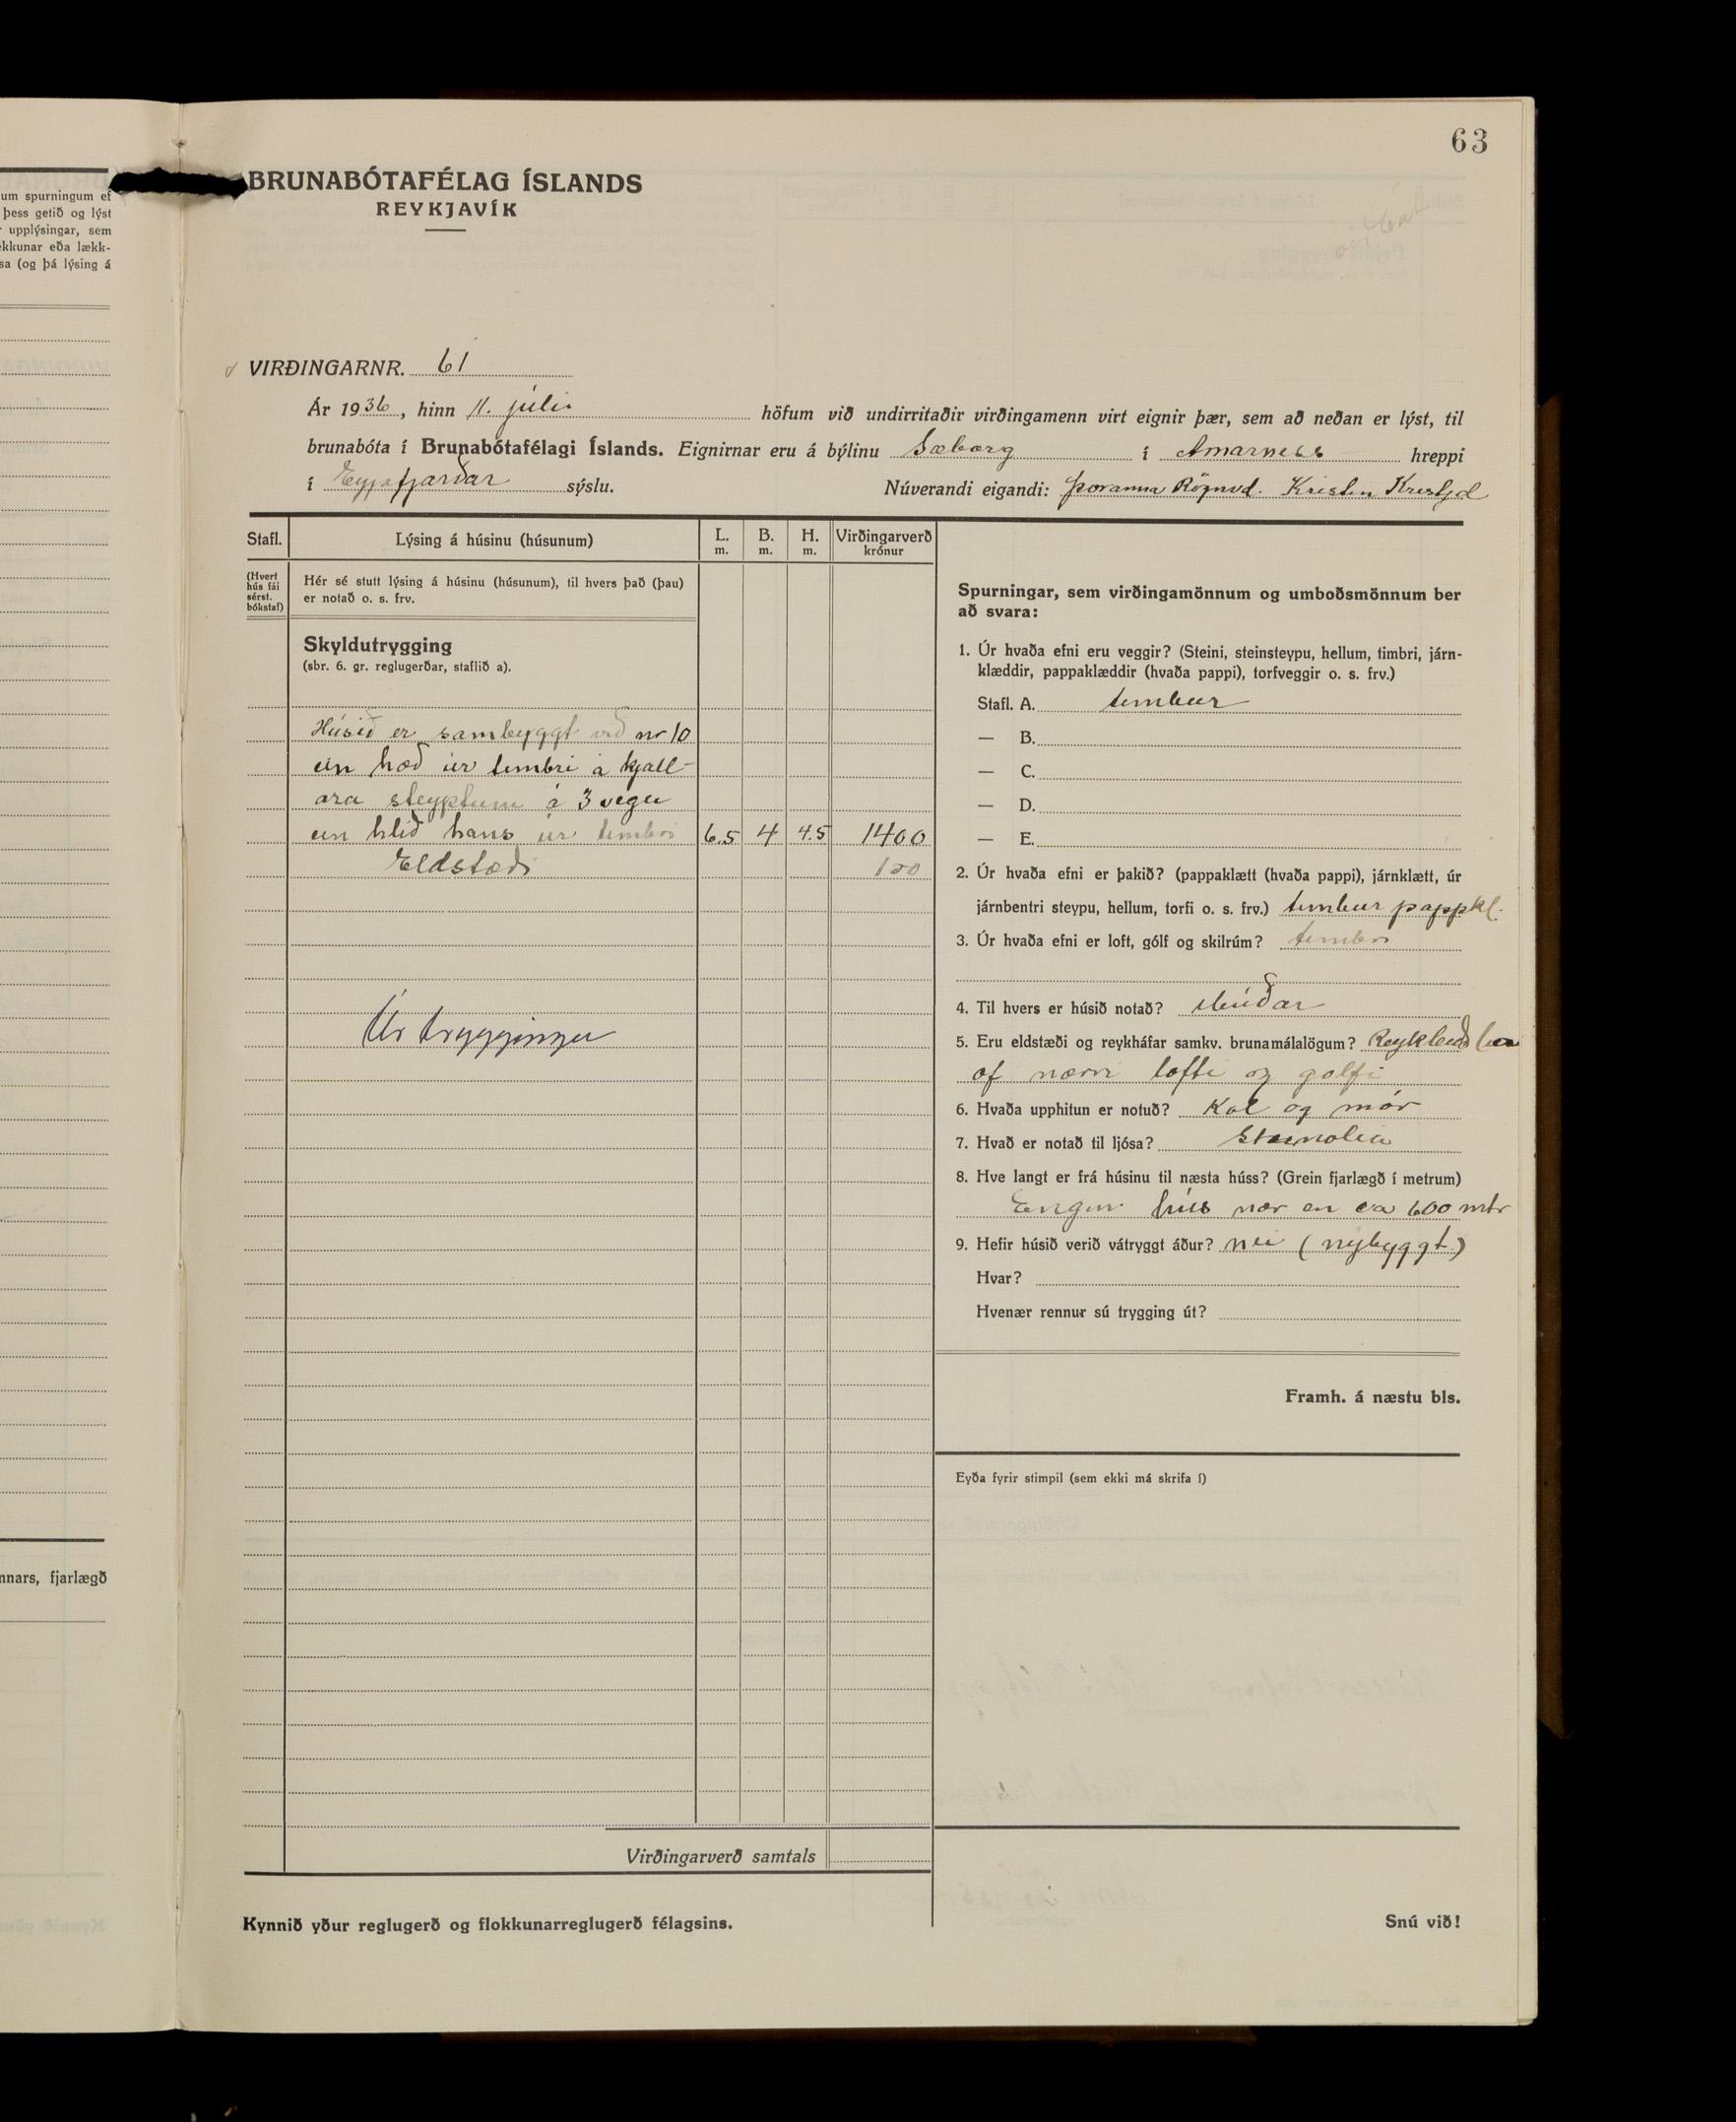 63
um spurningum ef
þess getið og lýst
upplýsingar, sem
ekkunar eða lækk-
sa (og þá lýsing á
nnars, fjarlægð
BRUNABÓTAFÉLAG ÍSLANDS
REYKJAVÍK
VIRÐINGARNR. 61
Ár 1936, hinn 11. júlí höfum við undirritaðir virðingamenn virt eignir þær, sem að neðan er lýst, til
brunabóta í Brunabótafélagi Íslands. Eignirnar eru á býlinu Sæborg í Arnarness hreppi
í Eyjafjarðar sýslu. Núverandi eigandi: Þoranna Rögnvd. Kristin Kristjd
Stafl. Lýsing á húsinu (húsunum) L. m. B. m. H. m. Virðingarverð krónur
(Hvert hús fái sérst. bókstaf)
Hér sé stutt lýsing á húsinu (húsunum), til hvers það (þau)
er notað o. s. frv.
Skyldutrygging
(sbr. 6. gr. reglugerðar, staflið a).
Húsið er sambyggt við nr 10
ein hæð úr timbri á kjall-
ara steyptum á 3 vegu
ein hlið hans úr timbri 6.5 4 4.5 1400
Eldstæði 100
Úr tryggingu
Virðingarverð samtals
Kynnið yður reglugerð og flokkunarreglugerð félagsins.
Spurningar, sem virðingamönnum og umboðsmönnum ber
að svara:
1. Úr hvaða efni eru veggir? (Steini, steinsteypu, hellum, timbri, járn-
klæddir, pappaklæddir (hvaða pappi), torfveggir o. s. frv.)
Stafl. A. timbur
— B.
— C.
— D.
— E.
2. Úr hvaða efni er þakið? (pappaklætt (hvaða pappi), járnklætt, úr
járnbentri steypu, hellum, torfi o. s. frv.) timbur pappkl.
3. Úr hvaða efni er loft, gólf og skilrúm? timbri
4. Til hvers er húsið notað? íbúðar
5. Eru eldstæði og reykháfar samkv. brunamálalögum?
of nærri lofti og gólfi
6. Hvaða upphitun er notuð? Kol og mór
7. Hvað er notað til ljósa? Steinolia
8. Hve langt er frá húsinu til næsta húss? (Grein fjarlægð í metrum)
Engin hús nær en ca 600 mtr
9. Hefir húsið verið vátryggt áður? nei (nýbyggt)
Hvar?
Hvenær rennur sú trygging út?
Framh. á næstu bls.
Eyða fyrir stimpil (sem ekki má skrifa í)
Snú við!